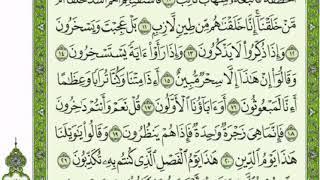 ٱلْخَطْفَةَ فَأَتْبَعَهُۥ شِهَابٌ ثَاقِبٌ ١٠ فَٱسْتَفْتِهِمْ أَهُمْ أَشَدُّ خَلْقًا أَم
مَّنْ خَلَقْنَآ إِنَّا خَلَقْنَٰهُم مِّن طِينٍ لَّازِبٍ ١١ بَلْ عَجِبْتَ وَيَسْخَرُونَ
١٢ وَإِذَا ذُكِّرُوا۟ لَا يَذْكُرُونَ ١٣ وَإِذَا رَأَوْا۟ ءَايَةً يَسْتَسْخِرُونَ ١٤
وَقَالُوٓا۟ إِنْ هَٰذَآ إِلَّا سِحْرٌ مُّبِينٌ ١٥ أَءِذَا مِتْنَا وَكُنَّا تُرَابًا وَعِظَٰمًا
أَءِنَّا لَمَبْعُوثُونَ ١٦ أَوَءَابَآؤُنَا ٱلْأَوَّلُونَ ١٧ قُلْ نَعَمْ وَأَنتُمْ دَٰخِرُونَ
١٨ فَإِنَّمَا هِىَ زَجْرَةٌ وَٰحِدَةٌ فَإِذَا هُمْ يَنظُرُونَ ١٩ وَقَالُوا۟ يَٰوَيْلَنَا
هَٰذَا يَوْمُ ٱلدِّينِ ٢٠ هَٰذَا يَوْمُ ٱلْفَصْلِ ٱلَّذِى كُنتُم بِهِۦ تُكَذِّبُونَ ٢١